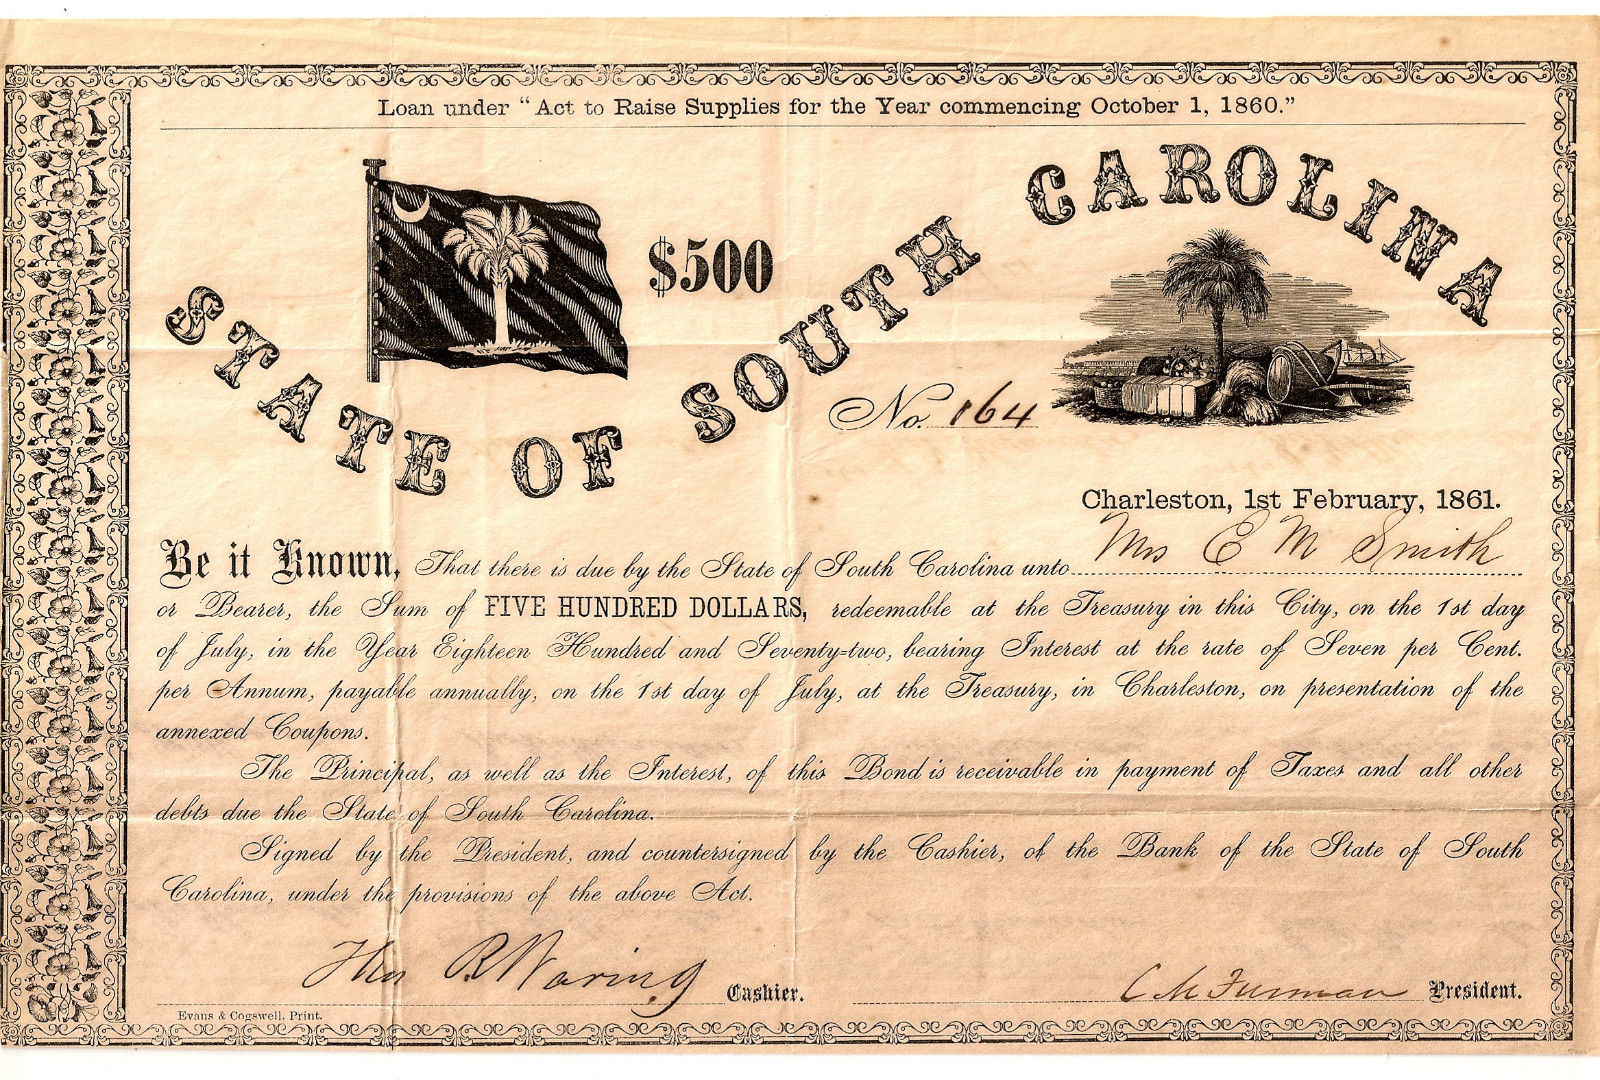 Loan under "Act to Raise Supplies for the Year commencing October 1, 1860."
STATE OF SOUTH CAROLINA
$500
No. 164
Charleston, 1st February, 1861.
Be it Known, That there is due by the State of South Carolina unto Mrs E M Smith
or Bearer, the Sum of FIVE HUNDRED DOLLARS, redeemable at the Treasury in this City, on the 1st day
of July, in the Year Eighteen Hundred and Seventy-two, bearing Interest at the rate of Seven per Cent.
per Annum, payable annually, on the 1st day of July, at the Treasury, in Charleston, on presentation of the
annexed Coupons.
The Principal, as well as the Interest, of this Bond is receivable in payment of Taxes and all other
debts due the State of South Carolina.
Signed by the President, and countersigned by the Cashier, of the Bank of the State of South
Carolina, under the provisions of the above Act.
Thos R Waring Cashier. C M Furman President.
Evans & Cogswell, Print.